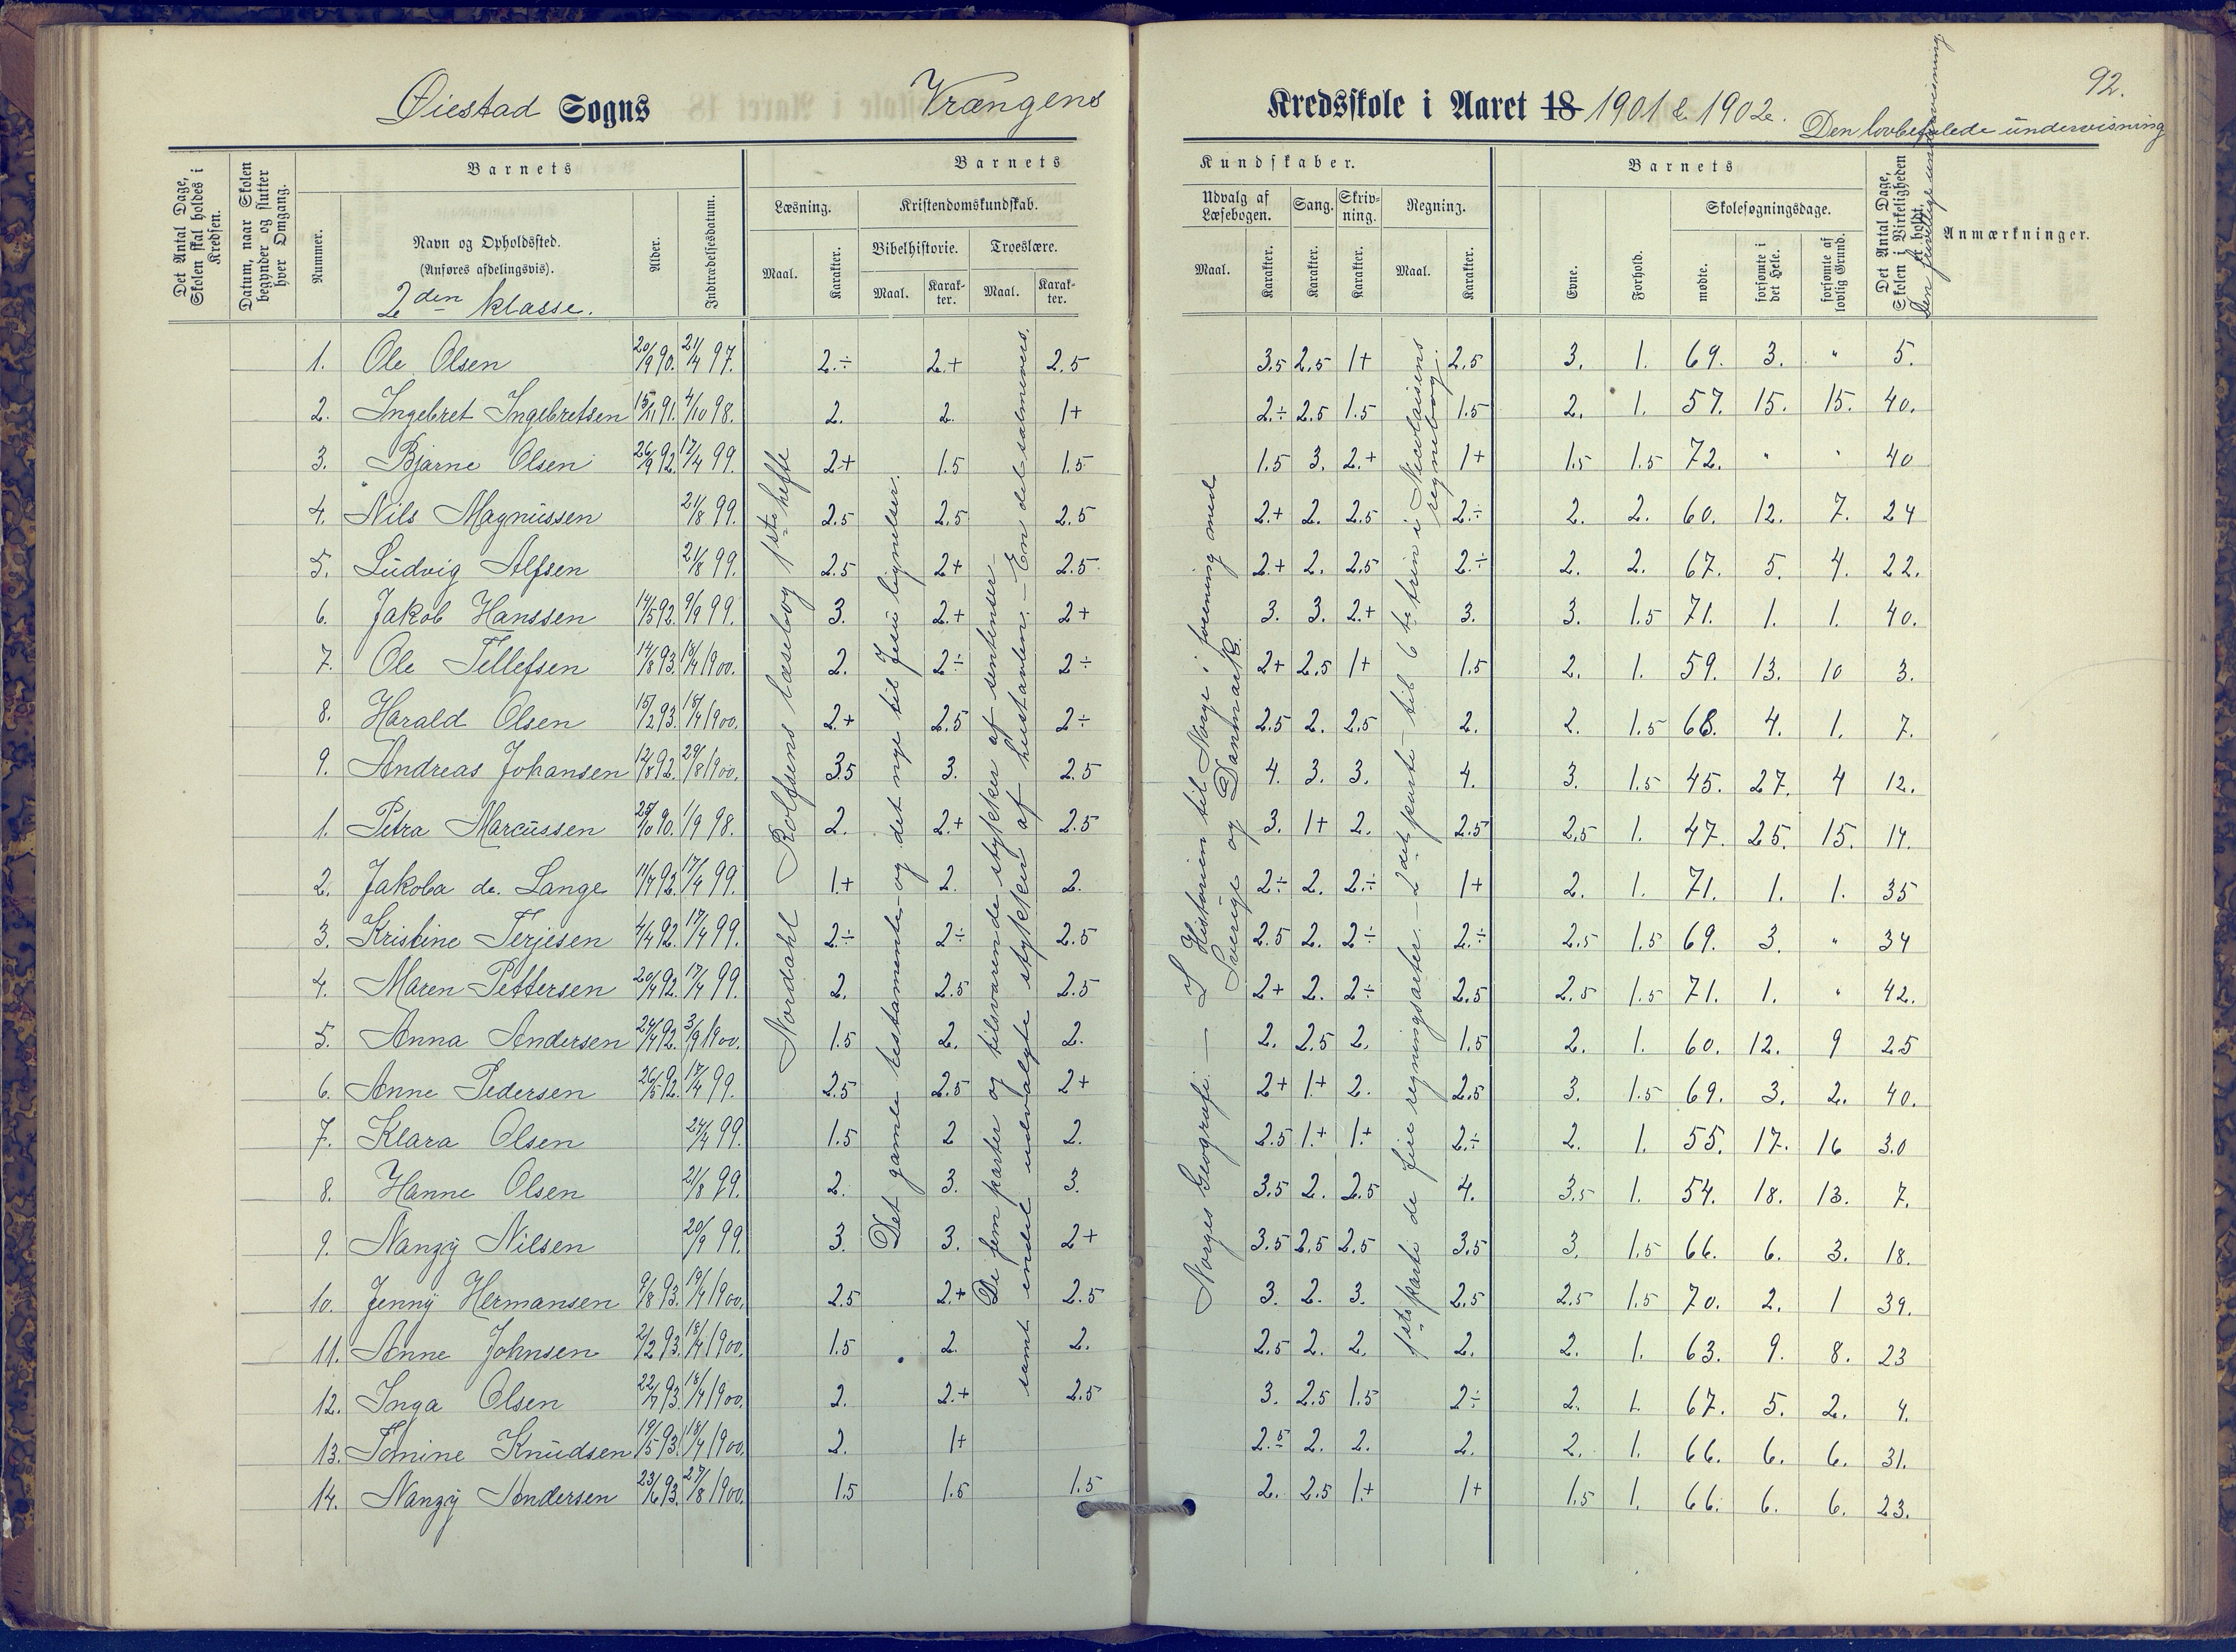 92.
Øiestad Sogns Vrængens Kredsskole i Aaret 18 1901 & 1902. Den lovbefalede undervisning
Det Antal Dage, Skolen skal holdes i Kredsen.
Datum, naar Skolen begynder og slutter hver Omgang.
Barnets
Nummer.
Navn og Opholdssted.
(Anføres afdelingsvis).
2den klasse.
Alder.
Indtrædelsesdatum.
Barnets Kundskaber.
Læsning.
Maal.
Karakter.
Kristendomskundskab.
Bibelhistorie.
Maal.
Karakter.
Troeslære.
Maal.
Karakter.
Udvalg af Læsebogen.
Maal.
Karakter.
Sang.
Karakter.
Skrivning.
Karakter.
Regning.
Maal.
Karakter.
Barnets
Evne.
Forhold.
Skolesøgningsdage.
mødte.
forsømte i det Hele.
forsømte af lovlig Grund.
Det Antal Dage, Skolen i Virkeligheden er holdt.
Den frivillige undervisning
Anmærkninger.
1. Ole Olsen 20/9 90. 21/4 97. 2.÷ 2.+ 2.5 3.5 2.5 1+ 2.5 3. 1. 69. 3. " 5.
2. Ingebret Ingebretsen 15/11 91. 4/10 98. 2. 2. 1+ 2.÷ 2.5 1.5 1.5 2. 1. 57. 15. 15. 40.
3. Bjarne Olsen 26/9 92. 17/4 99. 2+ 1.5 1.5 1.5 3. 2.+ 1+ 1.5 1.5 72. " " 40
4. Nils Magnussen 21/8 99. 2.5 2.5 2.5 2.+ 2. 2.5 2.÷ 2. 2. 60. 12. 7. 24
5. Ludvig Alfsen 21/8 99. 2.5 2+ 2.5 2.+ 2. 2.5 2.÷ 2. 2. 67. 5. 4. 22.
6. Jakob Hanssen 14/5 92. 9/9 99. 3. 2.+ 2+ 3. 3. 2.+ 3. 3. 1.5 71. 1. 1. 40.
7. Ole Tellefsen 14/8 93. 18/4 1900. 2. 2÷ 2÷ 2+ 2.5 1+ 1.5 2. 1. 59. 13. 10 3.
8. Harald Olsen 15/2 93. 18/4 1900. 2.+ 2.5 2÷ 2.5 2. 2.5 2. 2. 1.5 68. 4. 1. 7.
9. Andreas Johansen 12/8 92. 29/8 1900. 3.5 3. 2.5 4. 3. 3. 4. 3. 1.5 45. 27. 4 12.
1. Petra Marcussen 25/10 90. 1/9 98. 2. 2.+ 2.5 3. 1+ 2. 2.5 2.5 1. 47. 25. 15. 14.
2. Jakoba de. Lange 11/7 92. 17/4 99. 1.+ 2. 2. 2.÷ 2. 2.÷ 1+ 2. 1. 71. 1. 1. 35
3. Kristine Terjesen 4/4 92. 17/4 99. 2.÷ 2÷ 2.5 2.5 2. 2÷ 2.÷ 2.5 1.5 69. 3. " 34
4. Maren Pettersen 20/4 92. 17/4 99. 2. 2.5 2.5 2+ 2. 2÷ 2.5 2.5 1.5 71. 1. " 42.
5. Anna Andersen 24/4 92. 3/9 1900. 1.5 2. 2. 2. 2.5 2. 1.5 2. 1. 60. 12. 9 25
6. Anne Pedersen 26/5 92. 17/4 99. 2.5 2.5 2+ 2+ 1.+ 2. 2.5 3. 1.5 69. 3. 2. 40.
7. Klara Olsen 24/4 99. 1.5 2 2. 2.5 1.+ 1.+ 2.÷ 2. 1. 55. 17. 16 30
8. Hanne Olsen 21/8 99. 2. 3. 3. 3.5 2. 2.5 4. 3.5 1. 54. 18. 13. 7.
9. Nanzy Nilsen 20/9 99. 3. 3. 2+ 3.5 2.5 2.5 3.5 3. 1.5 66. 6. 3. 18.
10. Jenny Hermansen 9/8 93. 19/4 1900. 2.5 2.+ 2.5 3. 2. 3. 2.5 2.5 1.5 70. 2. 1 39.
11. Anne Johnsen 2/2 93. 18/4 1900. 1.5 2. 2. 2.5 2. 2. 2. 2. 1. 63. 9. 8. 23
12. Inga Olsen 22/7 93. 18/4 1900. 2. 2.+ 2.5 3. 2.5 1.5 2÷ 2. 1. 67. 5. 2. 4.
13. Tomine Knudsen 19/5 93. 18/4 1900. 2. 1+ 2.5 2. 2. 2. 2. 1. 66. 6. 6. 31.
14. Nanzy Andersen 23/6 93. 27/8 1900. 1.5 1.5 1.5 2. 2.5 1.+ 1+ 1.5 1. 66. 6. 6. 23.
Nordahl Rolfsens læsebog 1ste hefte
Det gamle testamente og det nye til Jesu lignelser.
De fem parter og tilsvarende stykker af sentenser
samt endel udvalgte stykker af historien. – En del salmevers.
Norges Geografi. – Historien til Norge i forening med
Sverige og Danmark.
1ste parti de fire regningsarter. – 2det parti – til 6te trin i Nicolaisens
regnebog.